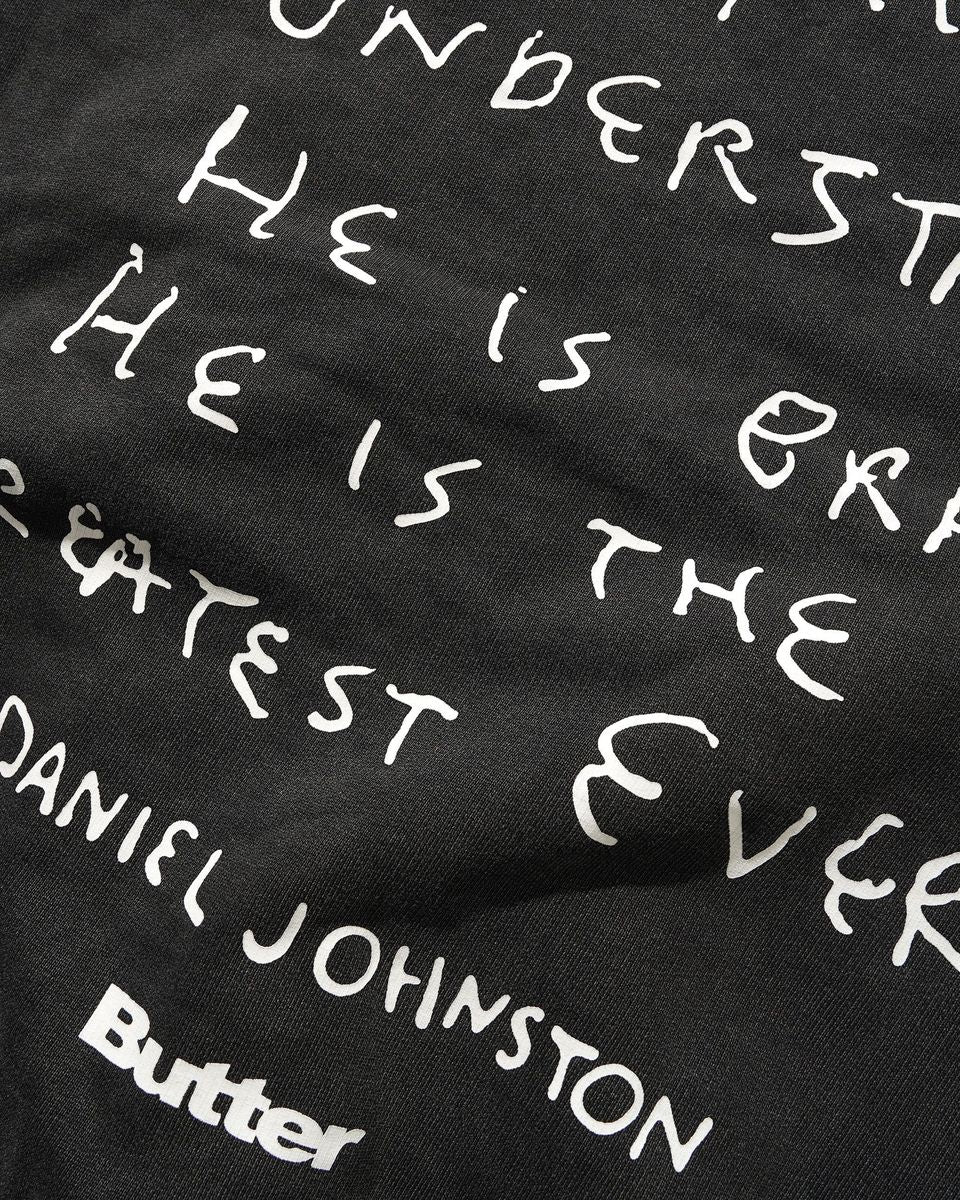 UNDERST
HE is BRA
HE IS THE
REATEST EVER
DANIEL JOHNSTON
Butter